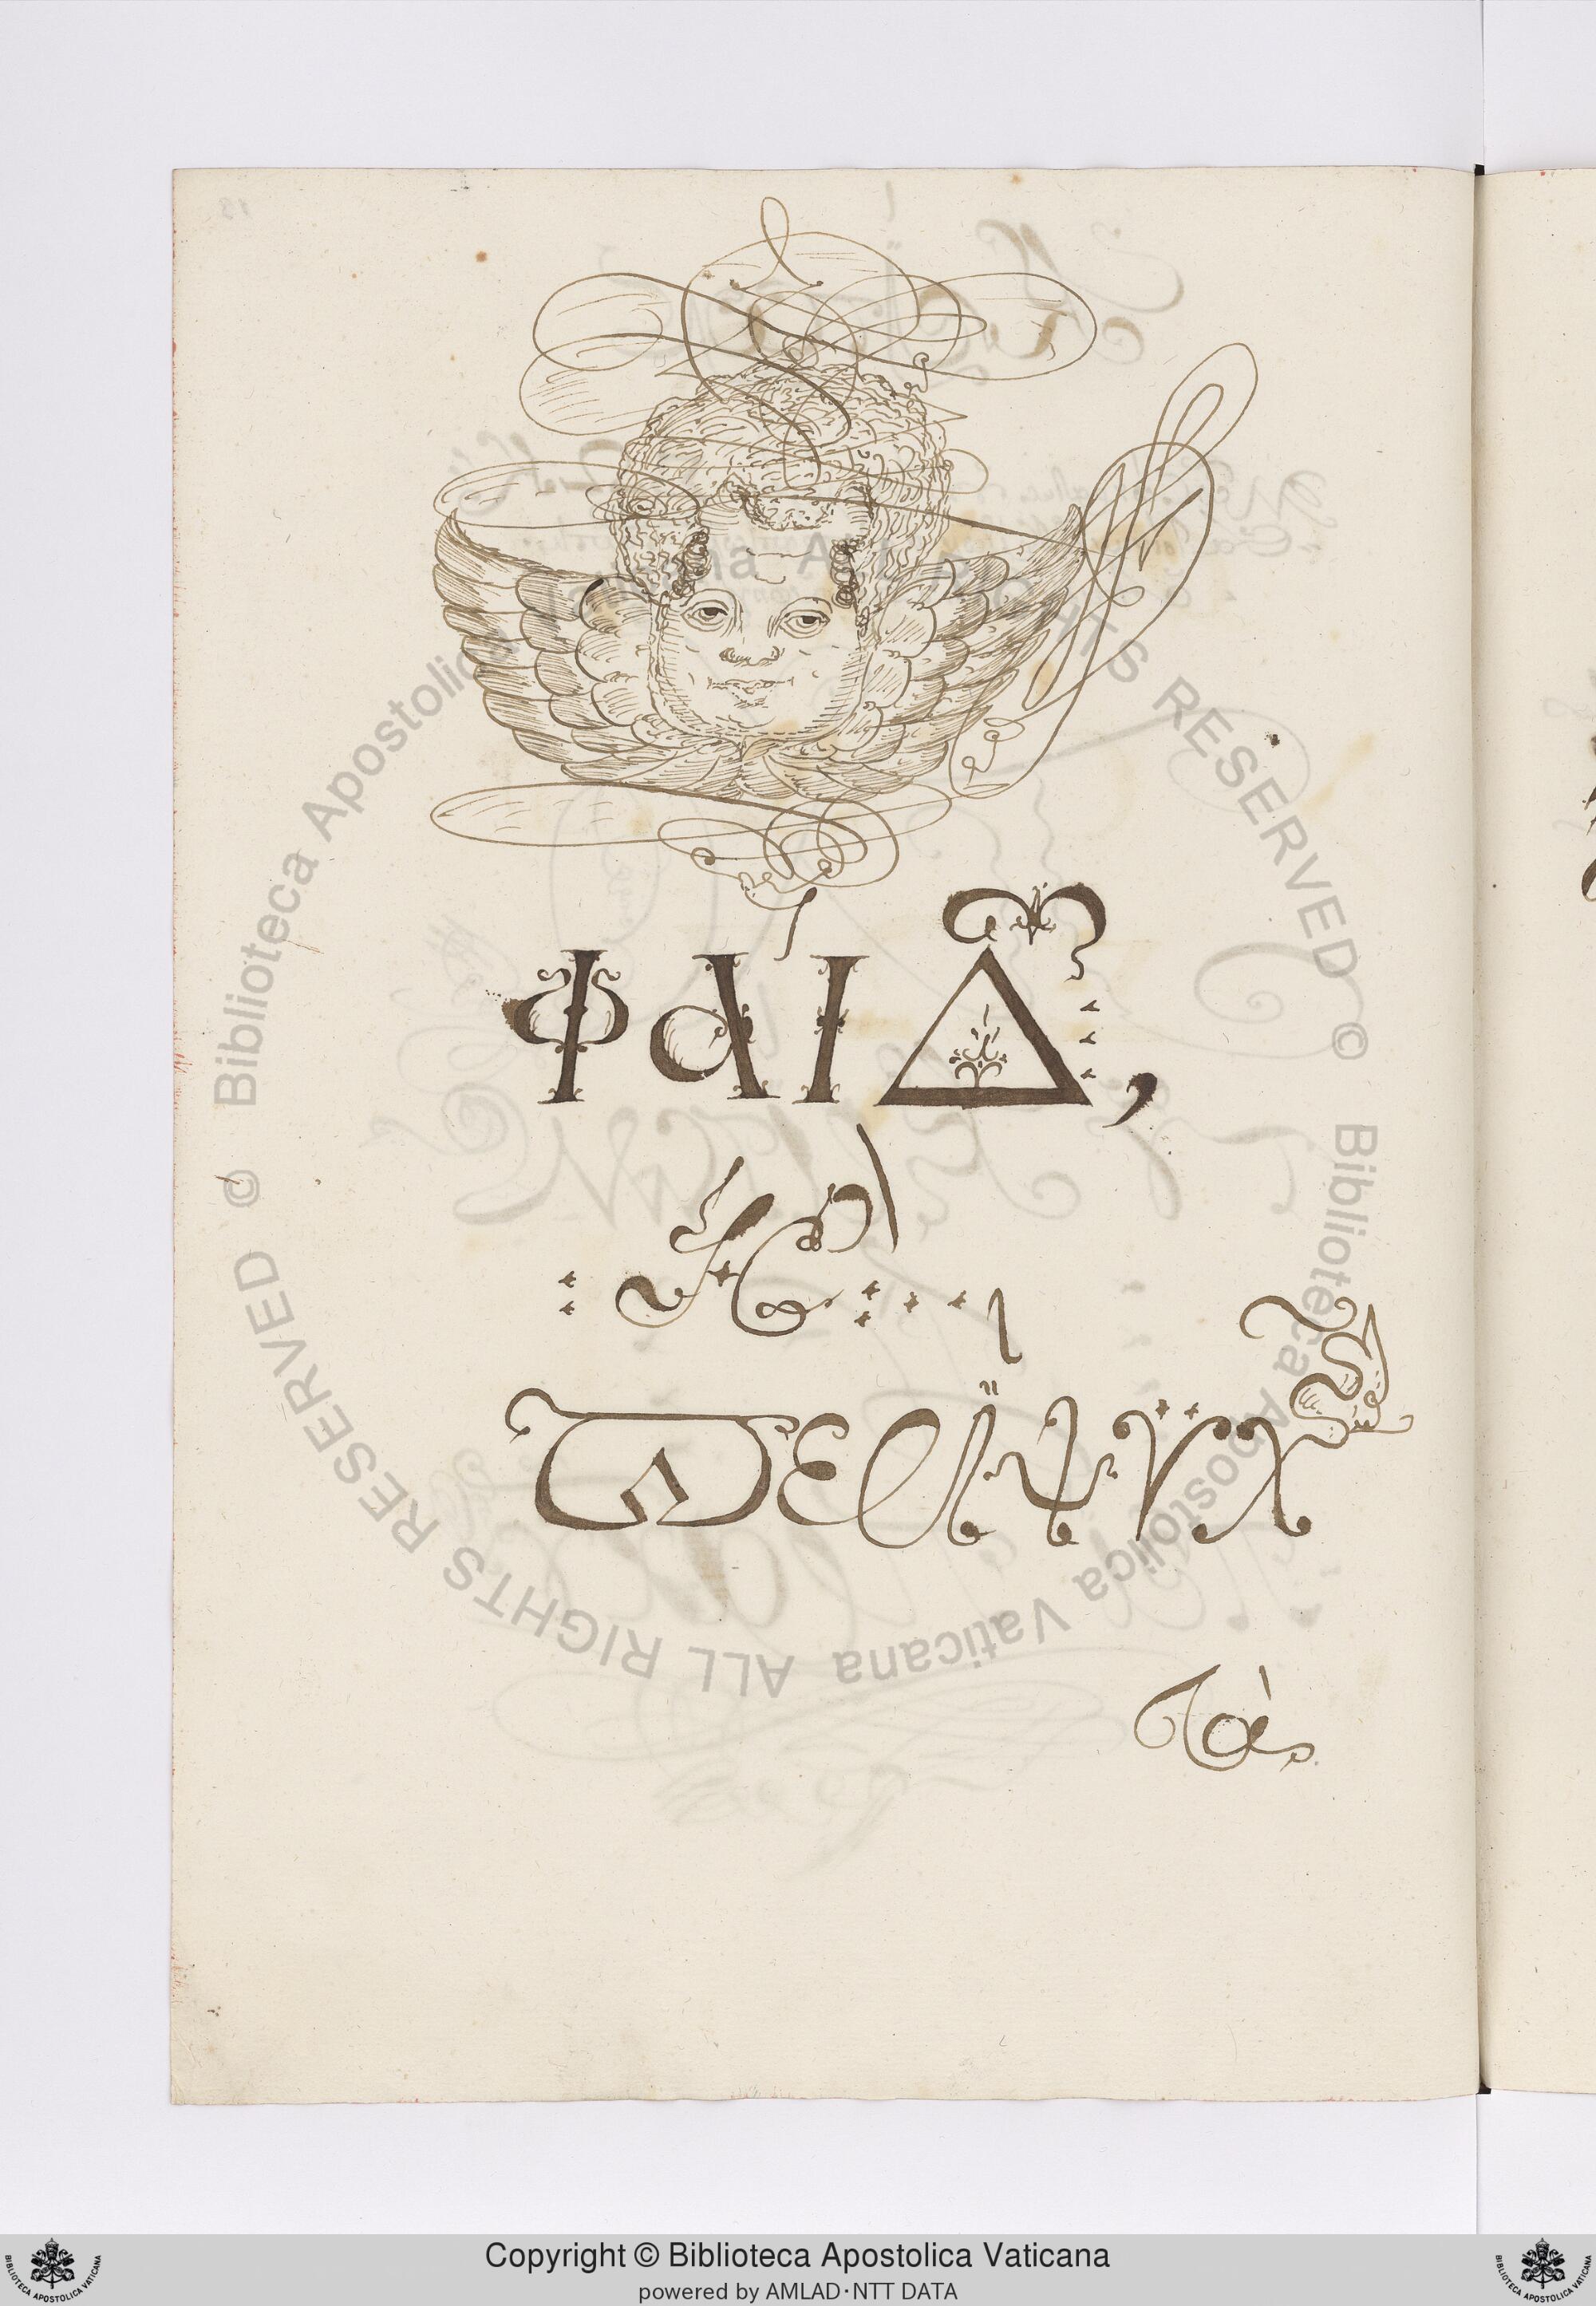 Φαίδω,
Περϊ ψυχ
τὰς
© Biblioteca Apostolica Vaticana ALL RIGHTS RESERVED © Biblioteca Apostolica Vaticana ALL RIGHTS RESERVED
Copyright © Biblioteca Apostolica Vaticana
powered by AMLAD·NTT DATA
BIBLIOTECA APOSTOLICA VATICANA
BIBLIOTECA APOSTOLICA VATICANA